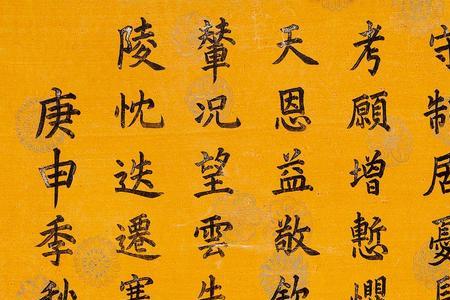 守制居憂
考願增慙懼
天恩益敬欽
輦況望雲
陵忱迭遷寒
庚申季秋